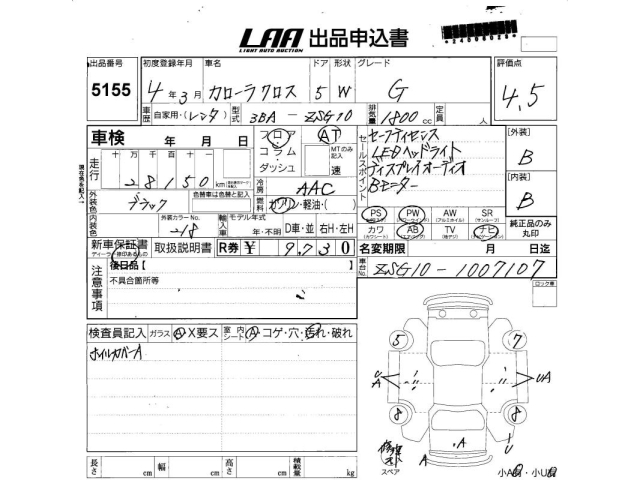 LAA 出品申込書
LIGHT AUTO AUCTION
出品番号 初度登録年月 車名 ドア 形状 グレード 評価点
5155 4年3月 カローラクロス 5 W G 4.5
車歴 自家用・(レンタ) 型式 3BA - ZSG10 排気量 1800cc 定員 人
車検 年 月 日 フロア AT
コラム MTのみ記入
ダッシュ 速
セールスポイント セーフティセンス
LEDヘッドライト
ディスプレイオーディオ
Bモニター
[外装]
B
[内装]
B
走行 十万 万 千 百 十 一
28150 km
現在色を記入
外装色 ブラック 色替車は色替と記入
内装色 外装カラーNo. 218
冷房 AAC
燃料 ガソリン・軽油・( )
輸入車 モデル年式 年・不明 D車・並 右H・左H
PS PW AW SR
カワ AB TV ナビ
純正品のみ丸印
新車保証書 取扱説明書 R券 ¥ 9,730
ディーラー捺印あるもの
名変期限 月 日迄
車台No. ZSG10-1007107
ロック車
注意事項 後日品【
不具合箇所等
検査員記入 ガラス A X要ス 室内シート A コゲ・穴・汚れ・破れ
ホイルカバーA
5 7
U A UA
8 8
U
A
A
修理
キット
スペア
小A・小U
長さ cm 幅 cm 高さ cm 積載量 kg